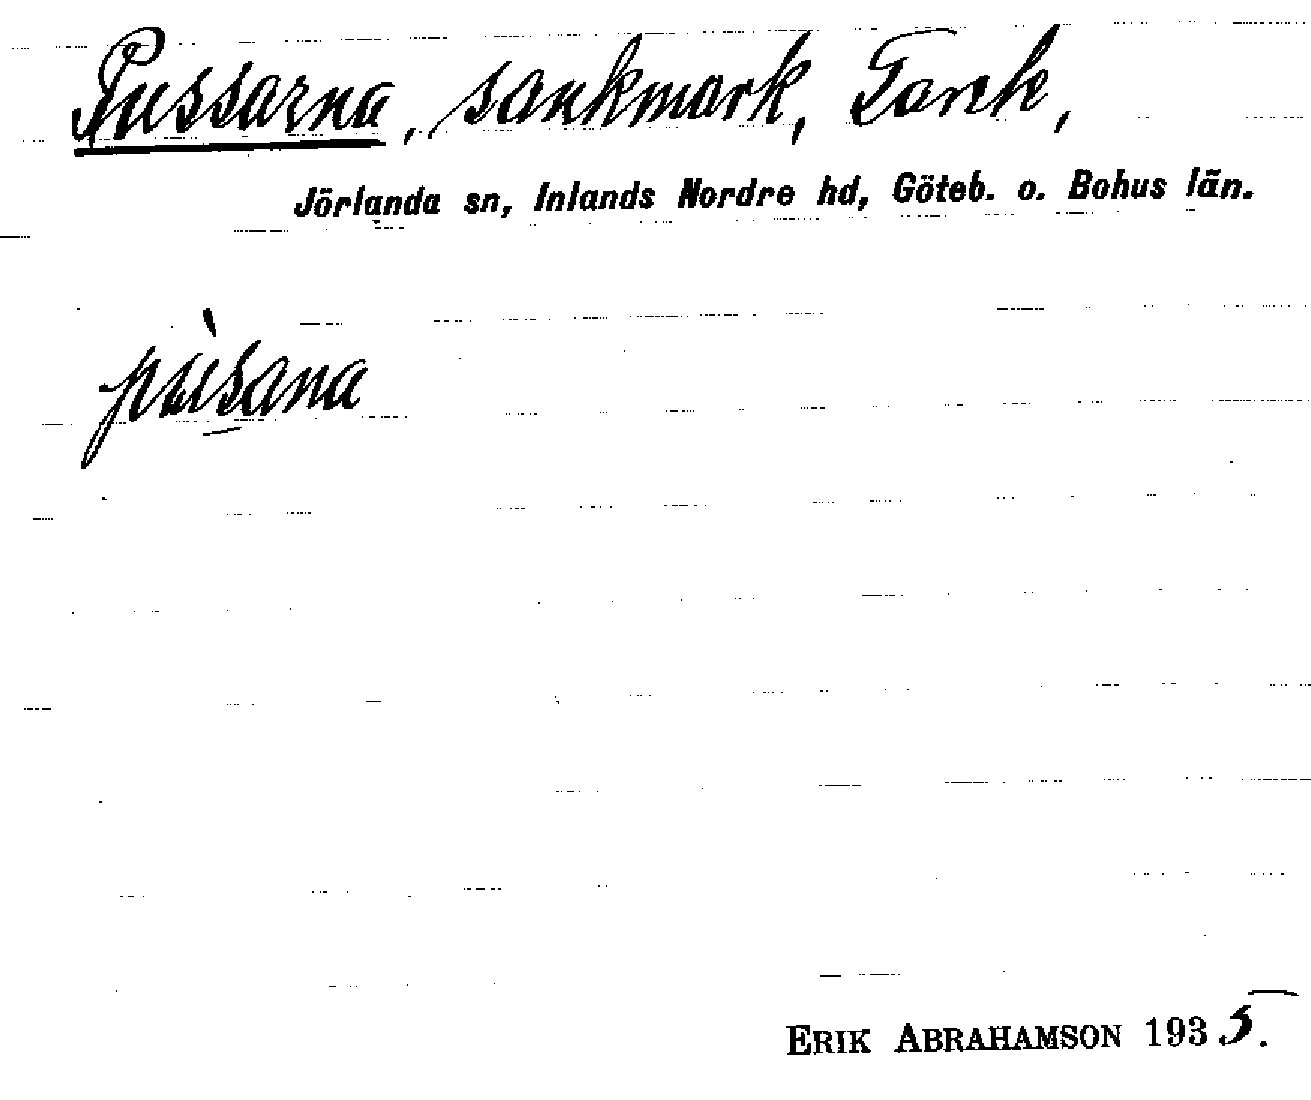 Pussarna, sankmark, Tareh,
Jörlanda sn, Inlands Nordre hd, Göteb. o. Bohus län.
pùsana
ERIK ABRAHAMSON 1935.